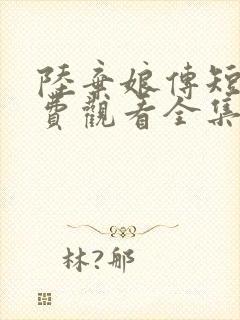 陸棄娘傳短
費觀看全集
林?郍